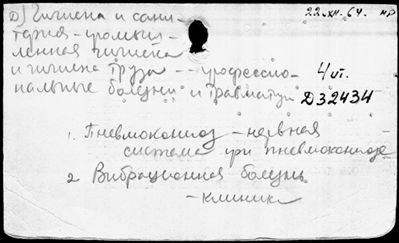 D) Гигиена и сани-
22.XII.64. нр
тария - промыш-
ленная гигиена
и гигиена труда -- професcио-
4 чт.
нальные болезни и травматизм
D32434
1. Пневмокониоз - нервная
система при пневмокониозе
2 Вибрационная болезнь
- клиника